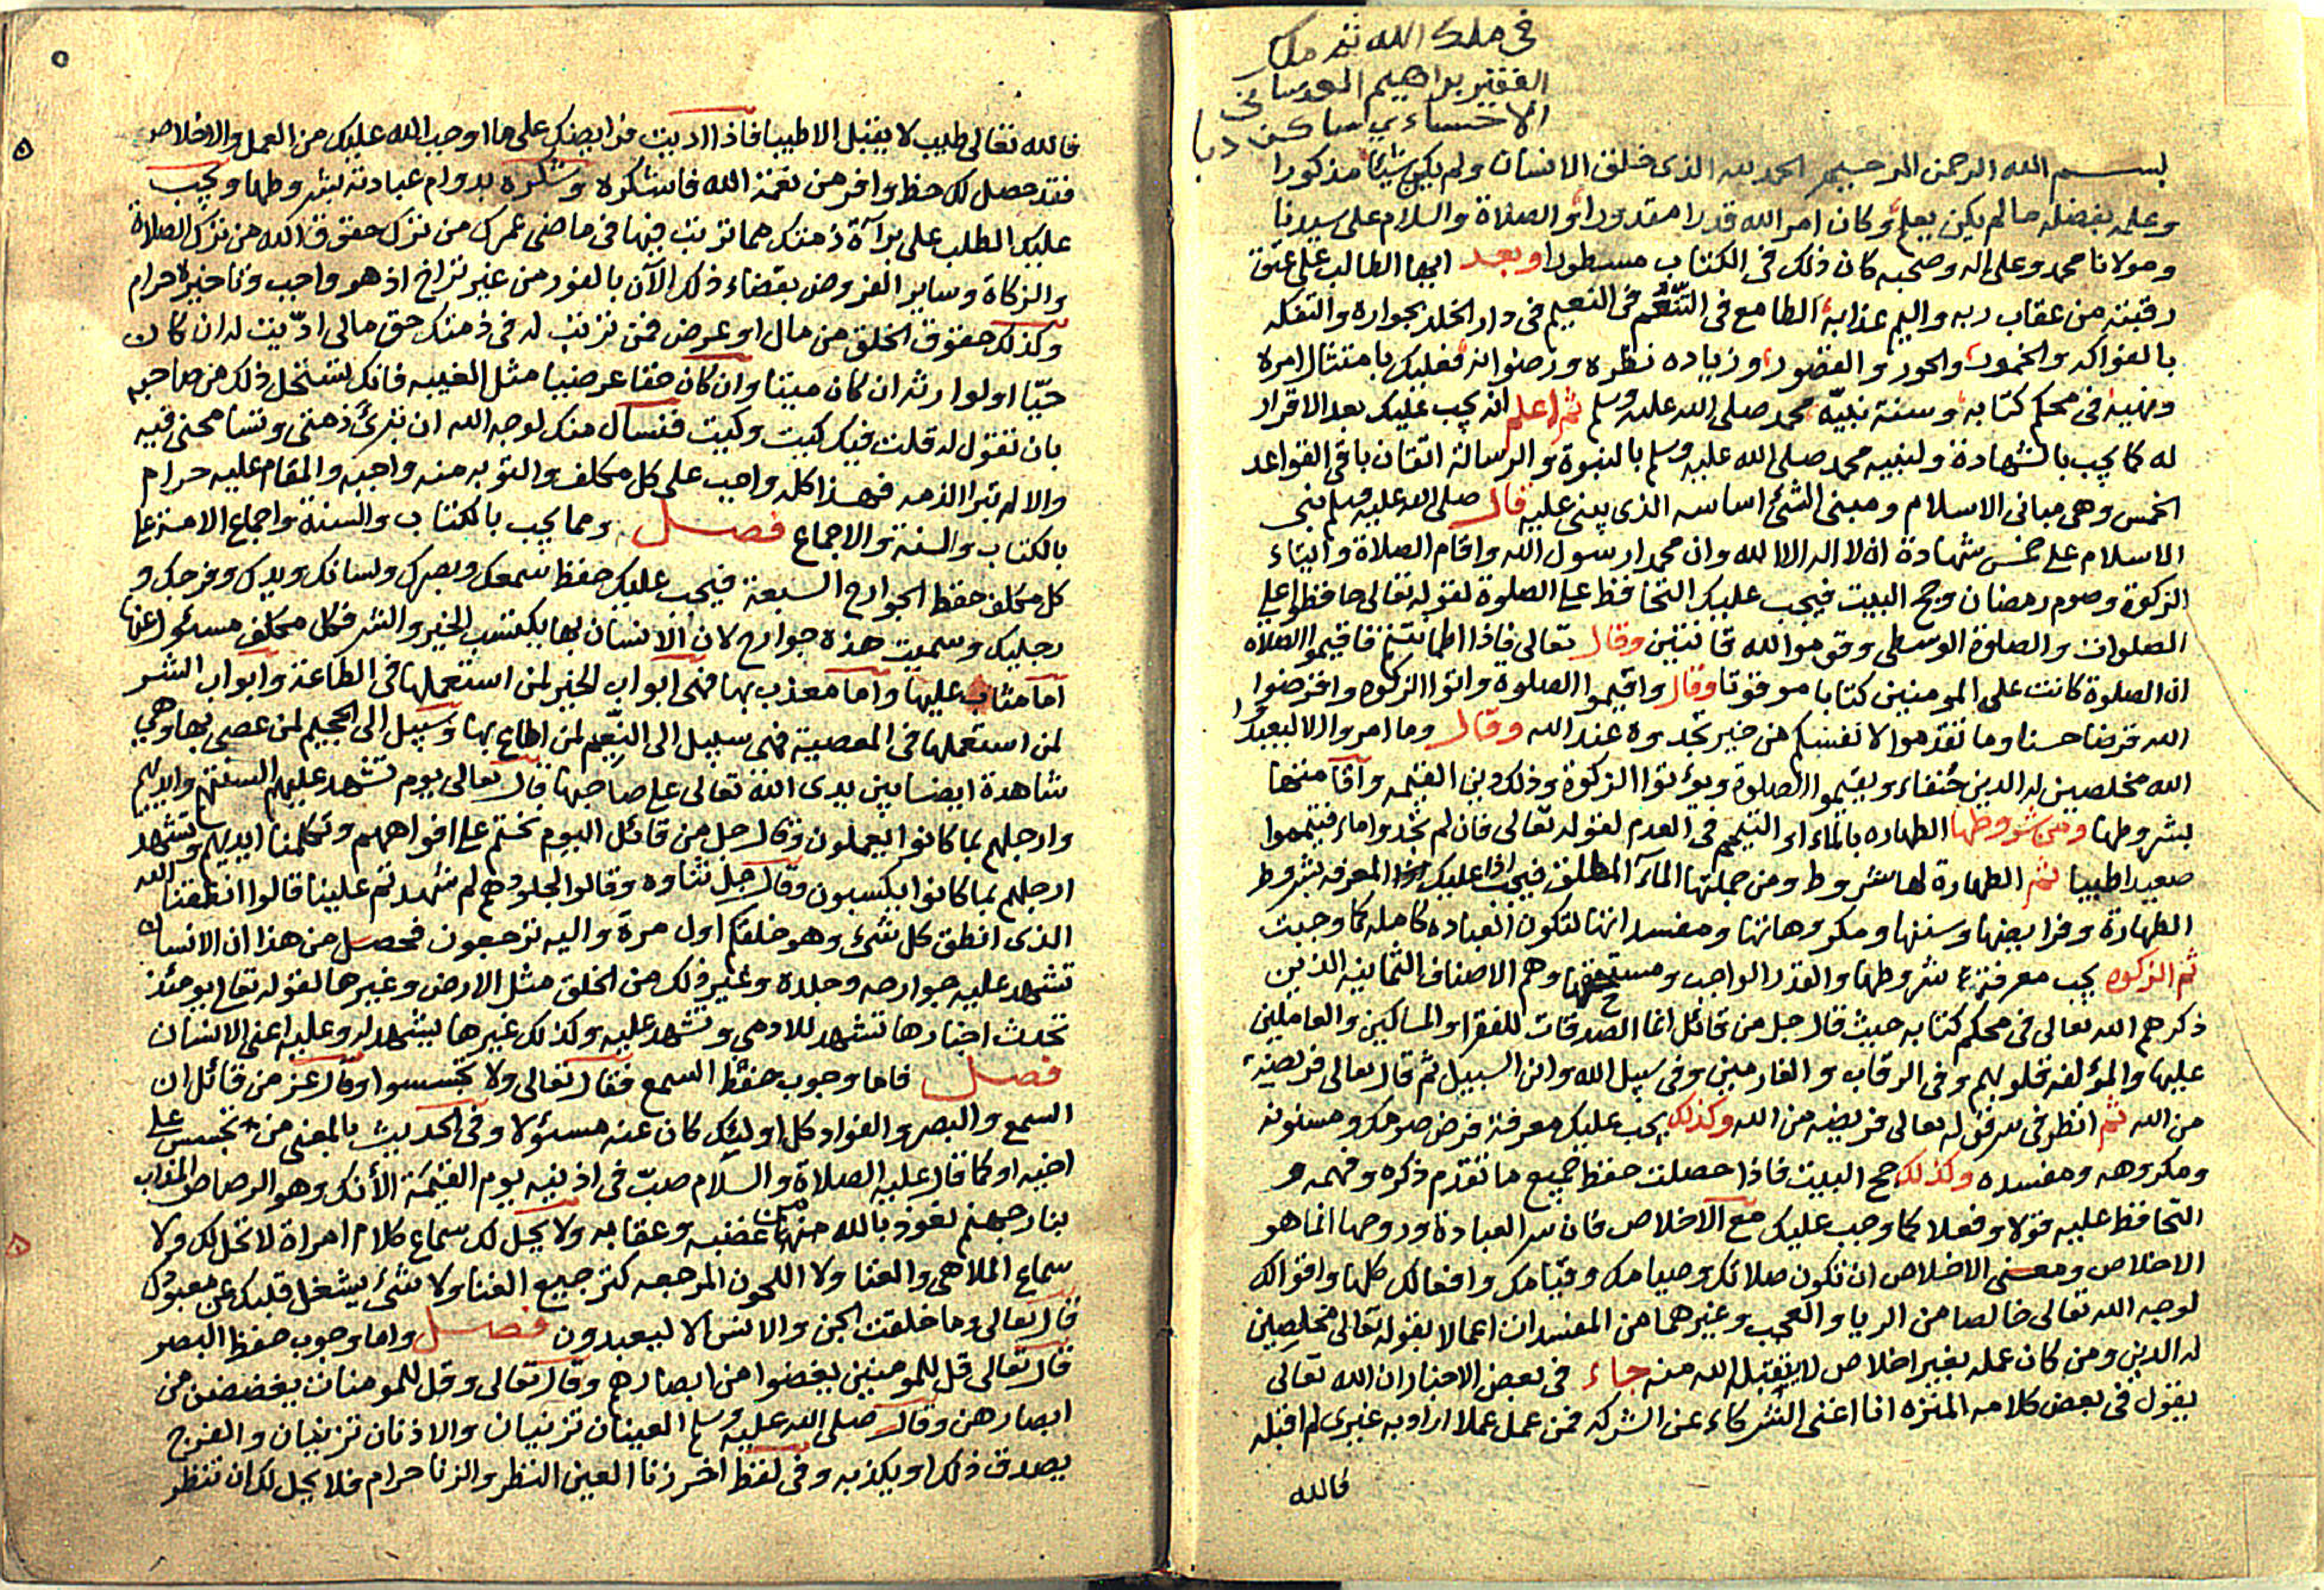 في ملك الله ثم ملك
الفقير براهيم
الاحساءي ساكن دبا
بسم الله الرحمن الرحيم الحمد لله الذى خلق الانسان ولم يكن شيئا مذكورا
وعلمه بفضله ما لم يكن يعلم وكان امر الله قدرا مقدورا والصلاة والسلام على سيدنا
ومولانا محمد وعلى اله وصحبه كان ذلك في الكتاب مسطورا وبعد ايها الطالب على عتق
رقبته من عقاب ربه واليم عذابه الطامع في التنعّم في النعيم في دار الخلد بجواره والتفكه
بالفواكه والخمور والحور والقصور وزياده نظره ورضوانه فعليك بامتثال امره
ونهيه في محكم كتابه وسنة نبيّه محمد صلى الله عليه وسلم ثم اعلم انه يجب عليك بعد الاقرار
له كما يجب بالشهادة ولنبيه محمد صلى الله عليه وسلم بالنبوة والرسالة اتقان باقي القواعد
الخمس وهي مباني الاسلام ومبنى الشئ اساسه الذى يبنى عليه قال صلى الله عليه وسلم بنى
الاسلام على خمس شهادة ان لا اله الا الله وان محمدا رسول الله واقام الصلاة وايتاء
الزكوة وصوم رمضان وحج البيت فيجب عليك التحافظ على الصلوة لقوله تعالى حافظوا على
الصلوات والصلوة الوسطى وقوموا لله قانتين وقال تعالى فاذا اطمانتم فاقيموا الصلاه
ان الصلوة كانت على المومنين كتابا موقوتا وقال واقيموا الصلوة واتوا الزكوه واقرضوا
الله قرضا حسنا وما تقدموا لانفسكم من خير تجدوه عند الله وقال وما امروا الا ليعبدوا
الله مخلصين له الدين حنفاء ويقيموا الصلوة ويؤتوا الزكوة وذلك دين القيمه واقامتها
بشروطها ومن شروطها الطهاره بالماء او التيمم في العدم لقوله تعالى فان لم تجدوا ماء فتيمموا
صعيدا طيبا ثم الطهارة لها شروط ومن جملتها المآء المطلق فيجب اذا عليك المعرفه بشروط
الطهارة وفرايضها وسننها ومكروهاتها ومفسداتها لتكون العباده كامله كما وجبت
ثم الزكوه يجب معرفة شروطها والقدر الواجب ومستحقيها وهم الاصناف الثمانيه الذين
ذكرهم الله تعالى في محكم كتابه حيث قال جل من قائل انما الصدقات للفقرا والمساكين والعاملين
عليها والمؤلفه قلوبهم وفى الرقاب والغارمين وفى سبيل الله وابن السبيل ثم قال تعالى فريضة
من الله ثم انظر في سر قوله تعالى فريضه من الله وكذلك يجب عليك معرفة فرض صومك ومسنونه
ومكروهه ومفسده وكذلك حج البيت فاذا حصلت حفظ جميع ما تقدم ذكره وفهمه و
التحافظ عليه قولا وفعلا كما وجب عليك مع الاخلاص فان سر العبادة وروحها انما هو
الاخلاص ومعنى الاخلاص ان تكون صلاتك وصيامك وقيامك وافعالك كلها واقوالك
لوجه الله تعالى خالصا من الريا والعجب وغيرهما من المفسدات اعمالا بقوله تعالى مخلصين
له الدين ومن كان عمله بغير اخلاص لا يتقبل الله منه جاء في بعض الاخبار ان الله تعالى
يقول في بعض كلامه المنزه انا اغنى الشركاء عن الشركه فمن عمل عملا اراد به غيرى لم اقبله
فالله
٥
فالله تعالى طيب لا يقبل الا طيبا فاذا اديت فرايضك على ما اوجب الله عليك من العمل والاخلاص
فقد حصل لك حظ وافر من نعمة الله فاشكره وشكره بدوام عبادته بشروطها ويجب
عليك الطلب على برآة ذمتك مما ترتب فيها في ما مضى عمرك من ترك حقوق الله من ترك الصلاة
والزكاة وساير الفروض بقضاء ذلك الآن بالفور من غير تراخ اذ هو واجب وتاخيره حرام
وكذلك حقوق الخلق من مال او عرض فمن ترتب له في ذمتك حق مالى ادّيت له ان كان
حيّا او لوارثه ان كان ميتا وان كان حقا عرضيا مثل الغيبه فانك تستحل ذلك من صاحبه
بان تقول له قلت فيك كيت وكيت فنسال منك لوجه الله ان تبرئ ذمتى وتسامحنى فيه
والا لم تبرا الذمه فهذا كله واجب على كل مكلف والتوبه منه واجبه والمقام عليه حرام
بالكتاب والسنة والاجماع فصل ومما يجب بالكتاب والسنة واجماع الامة على
كل مكلف حفظ الجوارح السبعة فيجب عليك حفظ سمعك وبصرك ولسانك ويدك وفرجك و
رجليك وسميت هذه جوارح لان الانسان بها يكتسب الخير والشر فكل مكلف مسئول عنها
اما مثاب عليها واما معذب بها فهى ابواب الخير لمن استعملها في الطاعة وابواب الشر
لمن استعملها في المعصية فهى سبيل الى النعيم لمن اطاع بها وسبيل الى الجحيم لمن عصى بها وهي
شاهدة ايضا بين يدى الله تعالى على صاحبها قال تعالى يوم تشهد عليهم السنتهم وايديهم
وارجلهم بما كانوا يعملون وقال جل من قائل اليوم نختم على افواههم وتكلمنا ايديهم وتشهد
ارجلهم بما كانوا يكسبون وقال جل ثناوه وقالوا لجلودهم لم شهدتم علينا قالوا انطقنا الله
الذى انطق كل شيء وهو خلقكم اول مرة واليه ترجعون فحصل من هذا ان الانسان
تشهد عليه جوارحه وجلده وغير ذلك من الخلق مثل الارض وغيرها لقوله تعالى يومئذ
تحدث اخبارها تشهد للادمى وتشهد عليه وكذلك غيرها يشهد له وعليه اعنى الانسان
فصل فاما وجوب حفظ السمع فقال تعالى ولا تجسسوا وقال عز من قائل ان
السمع والبصر والفواد كل اوليك كان عنه مسئولا وفى الحديث بالمعنى من تجسس على
اخيه او كما قال عليه الصلاة والسلام صبّ في اذنيه يوم القيمة الأنك وهو الرصاص المذاب
بنار جهنم نعوذ بالله منها من غضبه وعقابه ولا يحل لك سماع كلام امراة لا تحل لك ولا
سماع الملاهى والغنا ولا اللحون المرجعه كترجيع الغنا ولا شئ يشغل قلبك عن معبودك
قال تعالى وما خلقت الجن والانس الا ليعبدون فصل واما وجوب حفظ البصر
قال تعالى قل للمومنين يغضوا من ابصارهم وقال تعالى وقل للمومنات يغضضن من
ابصارهن وقال صلى الله عليه وسلم العينان تزنيان والاذنان تزنيان والفرج
يصدق ذلك او يكذبه وفى لفظ اخر زنا العين النظر والزنا حرام فلا يحل لك ان تنظر